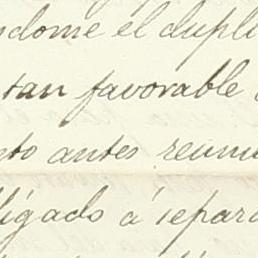 ndome el dupli
tan favorable
to antes reunu
ligado á separa